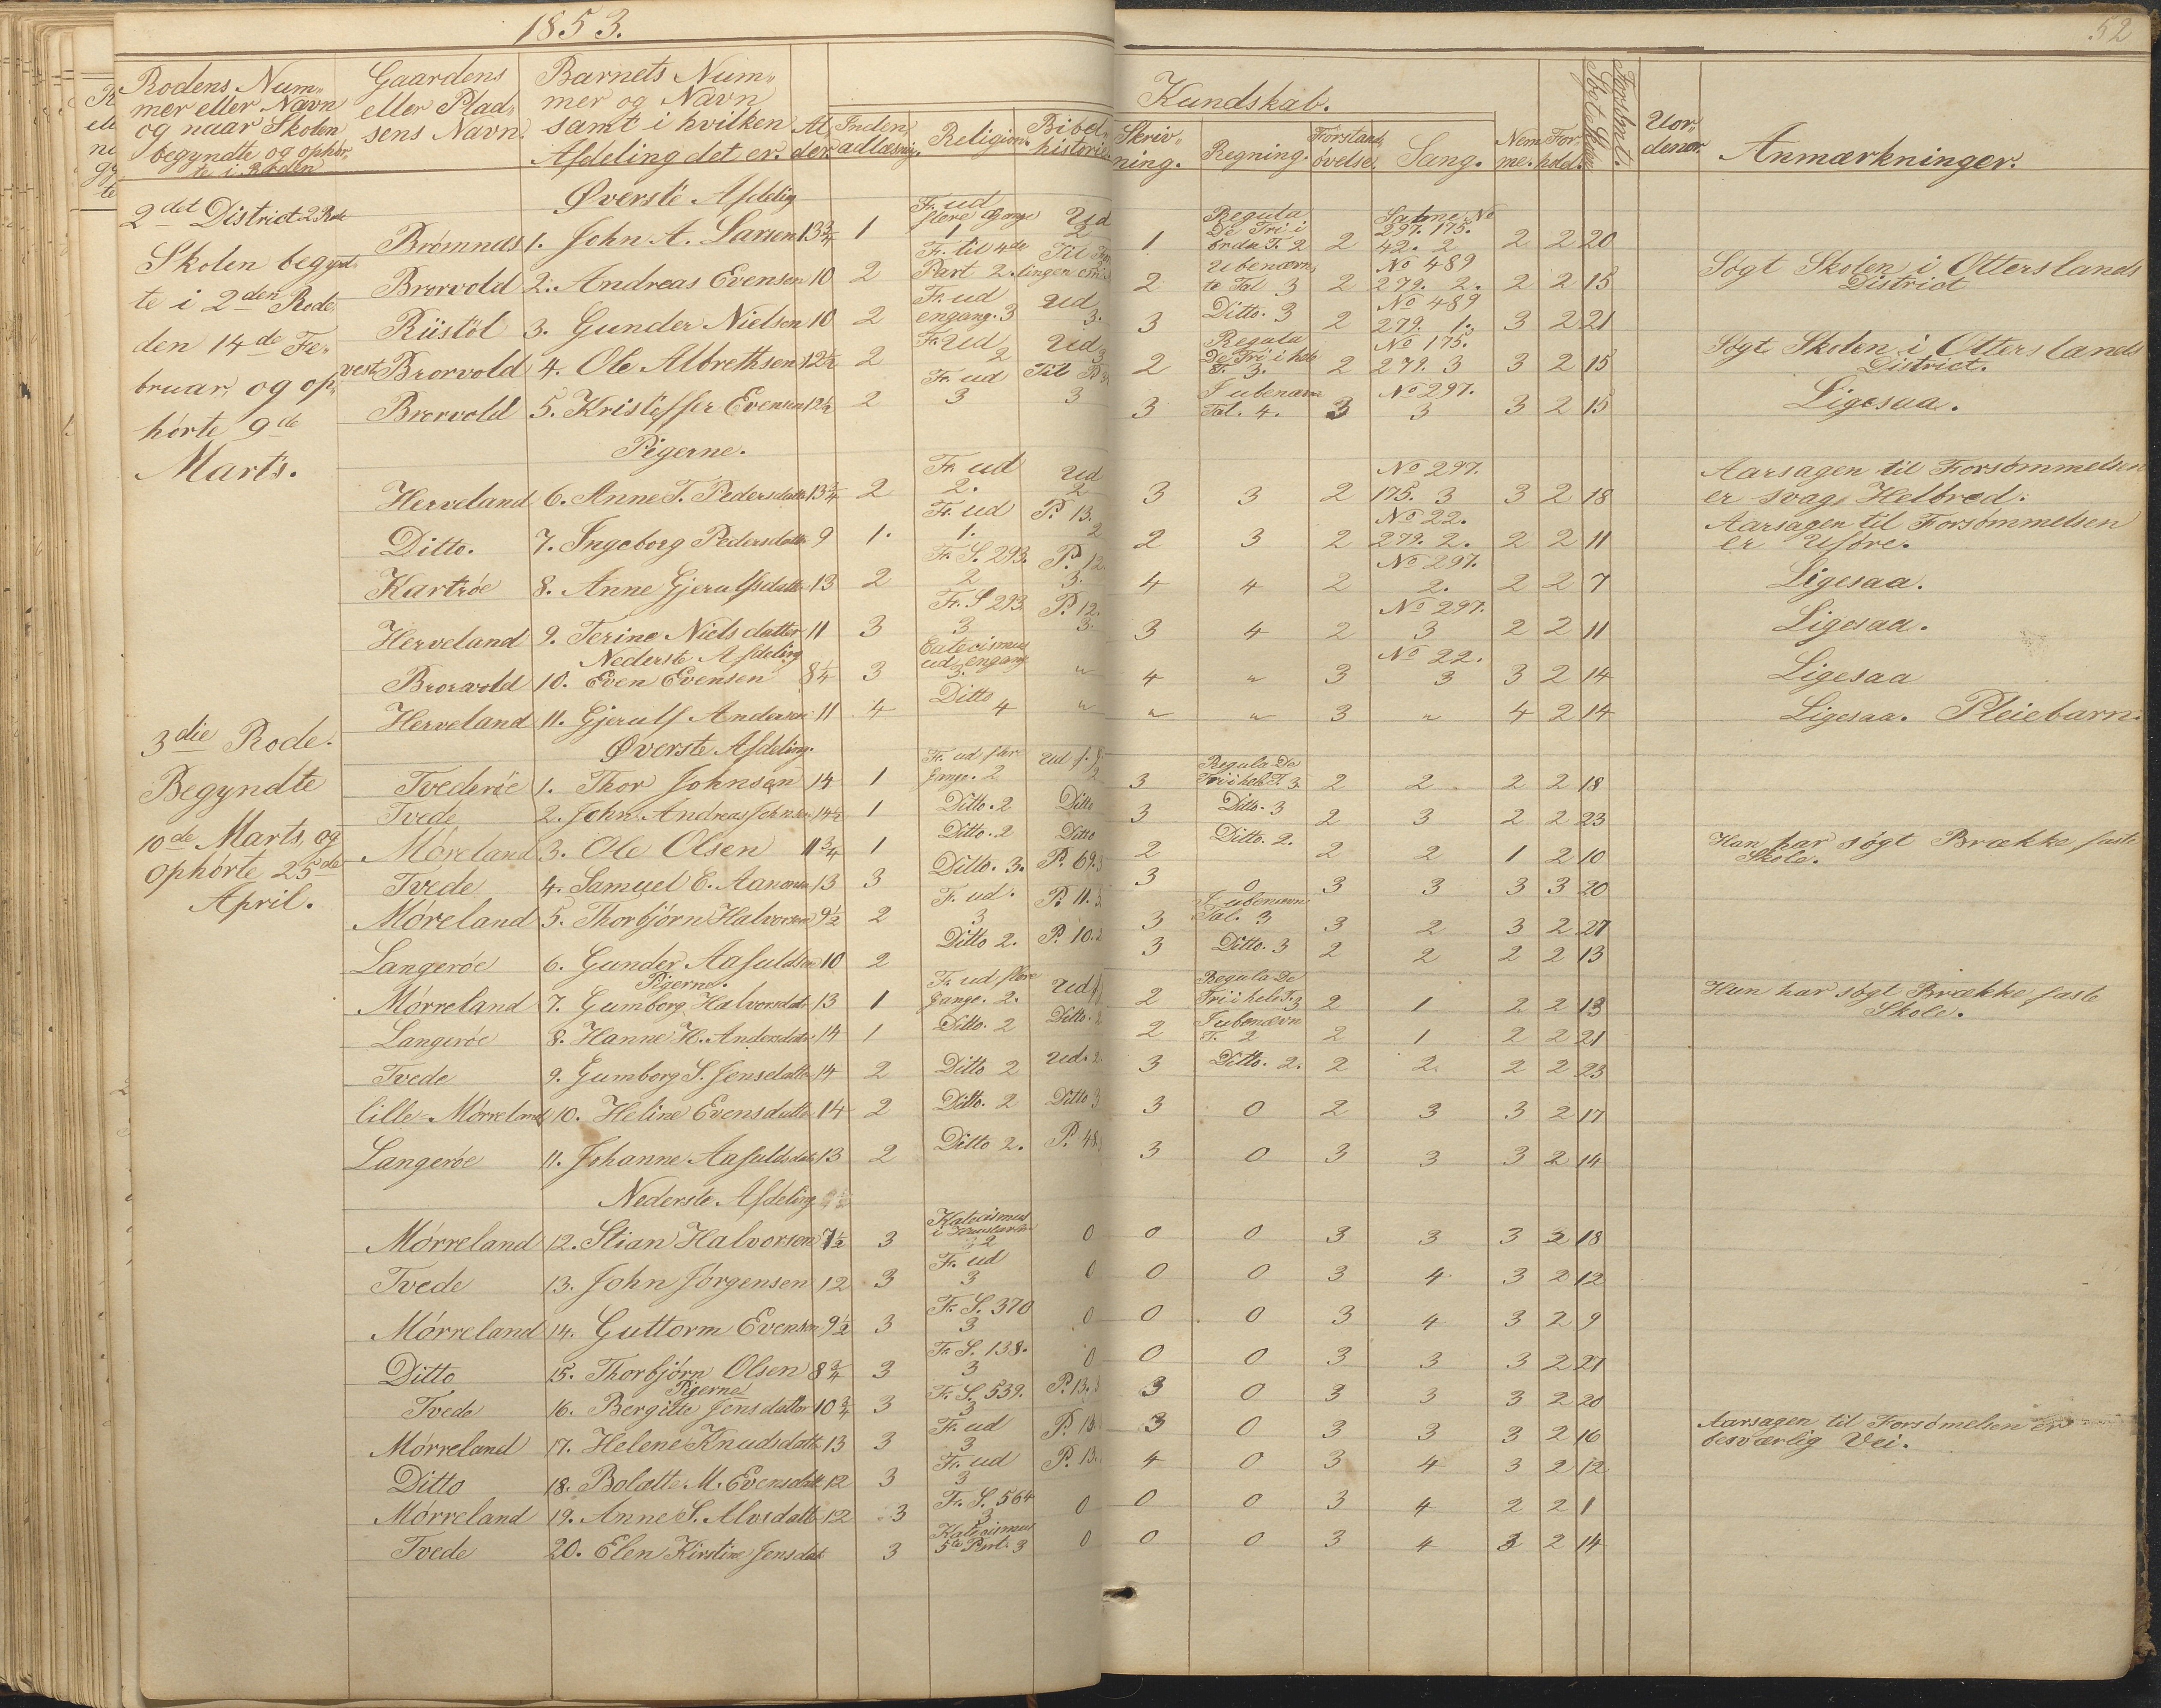 1853.
52
Rodens Num-
mer eller Navn
og naar Skolen
begyndte og ophør-
te i Roden
Gaardens
eller Plad-
sens Navn.
Barnets Num-
mer og Navn
samt i hvilken
Afdeling det er.
Al-
der.
Kundskab.
Inden-
adlæsning.
Religion.
Bibel-
historie
Skriv-
ning.
Regning.
Forstands
øvelse.
Sang.
Nem-
me.
For-
hold.
Søgte Skolen
Forsømt.
Uor-
dener
Anmærkninger.
2det District 2 Rode
Skolen begynd-
te i 2den Rode
den 14de Fe-
bruar, og op-
hørte 9de
Marts.
Øverste Afdeling
Brømnæs 1. John A. Larsen 13 3/4 1 Fr. ud flere Gange 1 Ud 2 1 Regula De Tri i brdn T. 2 2 Salme No 297. 175. 42. 2 2 2 20
Brorvold 2. Andreas Evensen 10 2 Fr. til 4de Part 2. 2 Ubenævn te Tal 3 2 No 489 279. 2. 2 2 15 Søgt Skolen i Otterslands District
Riistöl 3. Gunder Nielsen 10 2 Fr. ud engang. 3 Ud 3. 3 Ditto. 3 2 No 489 279. 1. 3 2 21
vest Brorvold 4. Ole Albrethsen 12 1/2 2 Fr. Ud 2 Ud 3 2 Regula De Tri i hele T. 3. 2 No 175. 279. 3 3 2 15 Søgt Skolen i Otterslands District.
Brorvold 5. Kristoffer Evensen 12 1/2 2 Fr. ud 3 Til P 3 3 I ubenævn Tal. 4. 3 No 297. 3 3 2 15 Ligesaa.
Pigerne.
Herveland 6. Anne T. Pedersdatter 13 3/4 2 Fr. ud 2. Ud 2 3 3 2 No 297. 175. 3 3 2 18 Aarsagen til Forsømmelsen er svag Helbred.
Ditto. 7. Ingeborg Pedersdatt 9 1. Fr. ud 1. P. 13. 2 2 3 2 No 22. 279. 2. 2 2 11 Aarsagen til Forsømmelsen er Uføre.
Kartröe 8. Anne Gjerulfsdatter 13 2 Fr. S. 293. 2 P. 12. 3. 4 4 2 No 297. 2. 2 2 7 Ligesaa.
Herveland 9. Terine Nielsdatter 11 3 Fr. S 293 3 P. 12. 3. 3 4 2 No 297. 3 2 2 11 Ligesaa.
Nederste Afdeling
Brorvold 10. Even Evensen 8 1/4 3 Catecismus ud engang 3. " 4 " 3 No 22. 3 3 2 14 Ligesaa
Herveland 11. Gjerulf Andersen 11 4 Ditto 4 " " " 3 " 4 2 14 Ligesaa. Pleiebarn.
3die Rode.
Begyndte
10de Marts, og
ophørte 25de
April.
Øverste Afdeling.
Tvederöe 1. Thor Johnsen 14 1 Fr. ud fler Gange. 2 Ud f. g. 2 3 Regula De Tri i hele T. 3 2 2 2 2 18
Tvede 2. John Andreas Johnsen 14 1/2 1 Ditto. 2 Ditto 3 Ditto. 3 2 3 2 2 23
Móreland 3. Ole Olsen 11 3/4 1 Ditto. 2 Ditto 2 Ditto. 2. 2 2 1 2 10 Han har søgt Brække faste Skole.
Tvede 4. Samuel E. Aanonsen 13 3 Ditto. 3. P. 69. 3 0 3 3 3 3 20
Móreland 5. Thorbjørn Halvorsen 9 1/2 2 F. ud. 3 P. 11. 3 3 I ubenævn Tal. 3 3 2 3 2 27
Langeróe 6. Gunder Aasuldsen 10 2 Ditto 2. P. 10. 2 3 Ditto. 3 2 2 2 2 13
Pigerne.
Mórreland 7. Gumborg Halvorsdat 13 1 Fr. ud flere Gange. 2. Ud f 2 Regula De Tri i hele T. 3 2 1 2 2 13 Hun har søgt Brække faste Skole.
Langeróe 8. Hanne H. Andersdatter 14 1 Ditto. 2 Ditto. 2 2 I ubenævn T. 2 2 1 2 2 21
Tvede 9. Gumborg S. Jensdatter 14 2 Ditto 2 Ud. 2 3 Ditto. 2. 2 2. 2 2 23
Lille-Mórreland 10. Heline Evensdatter 14 2 Ditto. 2 Ditto 3 3 0 2 3 3 2 17
Langeróe 11. Johanne Aasuldsdat 13 2 Ditto 2. P. 48. 3 0 3 3 3 2 14
Nederste Afdeling
Mórreland 12. Stian Halvorsen 7 1/2 3 Katecismus i 2 0 0 0 3 3 3 3 18
Tvede 13. John Jörgensen 12 3 Fr. ud 3 0 0 0 3 4 3 2 12
Mórreland 14. Guttorm Evensen 9 1/2 3 Fr. S. 370 3 0 0 0 3 4 3 2 9
Ditto 15. Thorbjörn Olsen 8 3/4 3 Fr. S. 138. 3 0 0 0 3 3 3 2 27
Pigerne
Tvede 16. Bergitte Jensdatter 10 3/4 3 Fr. S. 539. 3 P. 13. 3 0 3 3 3 2 20
Mórreland 17. Helene Knudsdatt 13 3 Fr. ud 3 P. 13. 3 0 3 3 3 2 16 Aarsagen til Forsømelsen er besværlig Vei.
Ditto 18. Bolætte M. Evensdatt 12 3 Fr. ud 3 P. 13. 4 0 3 4 3 2 12
Mórreland 19. Anne S. Alvsdatt 12 3 Fr. S. 564 3 0 0 0 3 4 2 2 1
Tvede 20. Elen Kirstine Jensdat 3 Katecismus 5te Part. 3 0 0 0 3 4 3 2 14